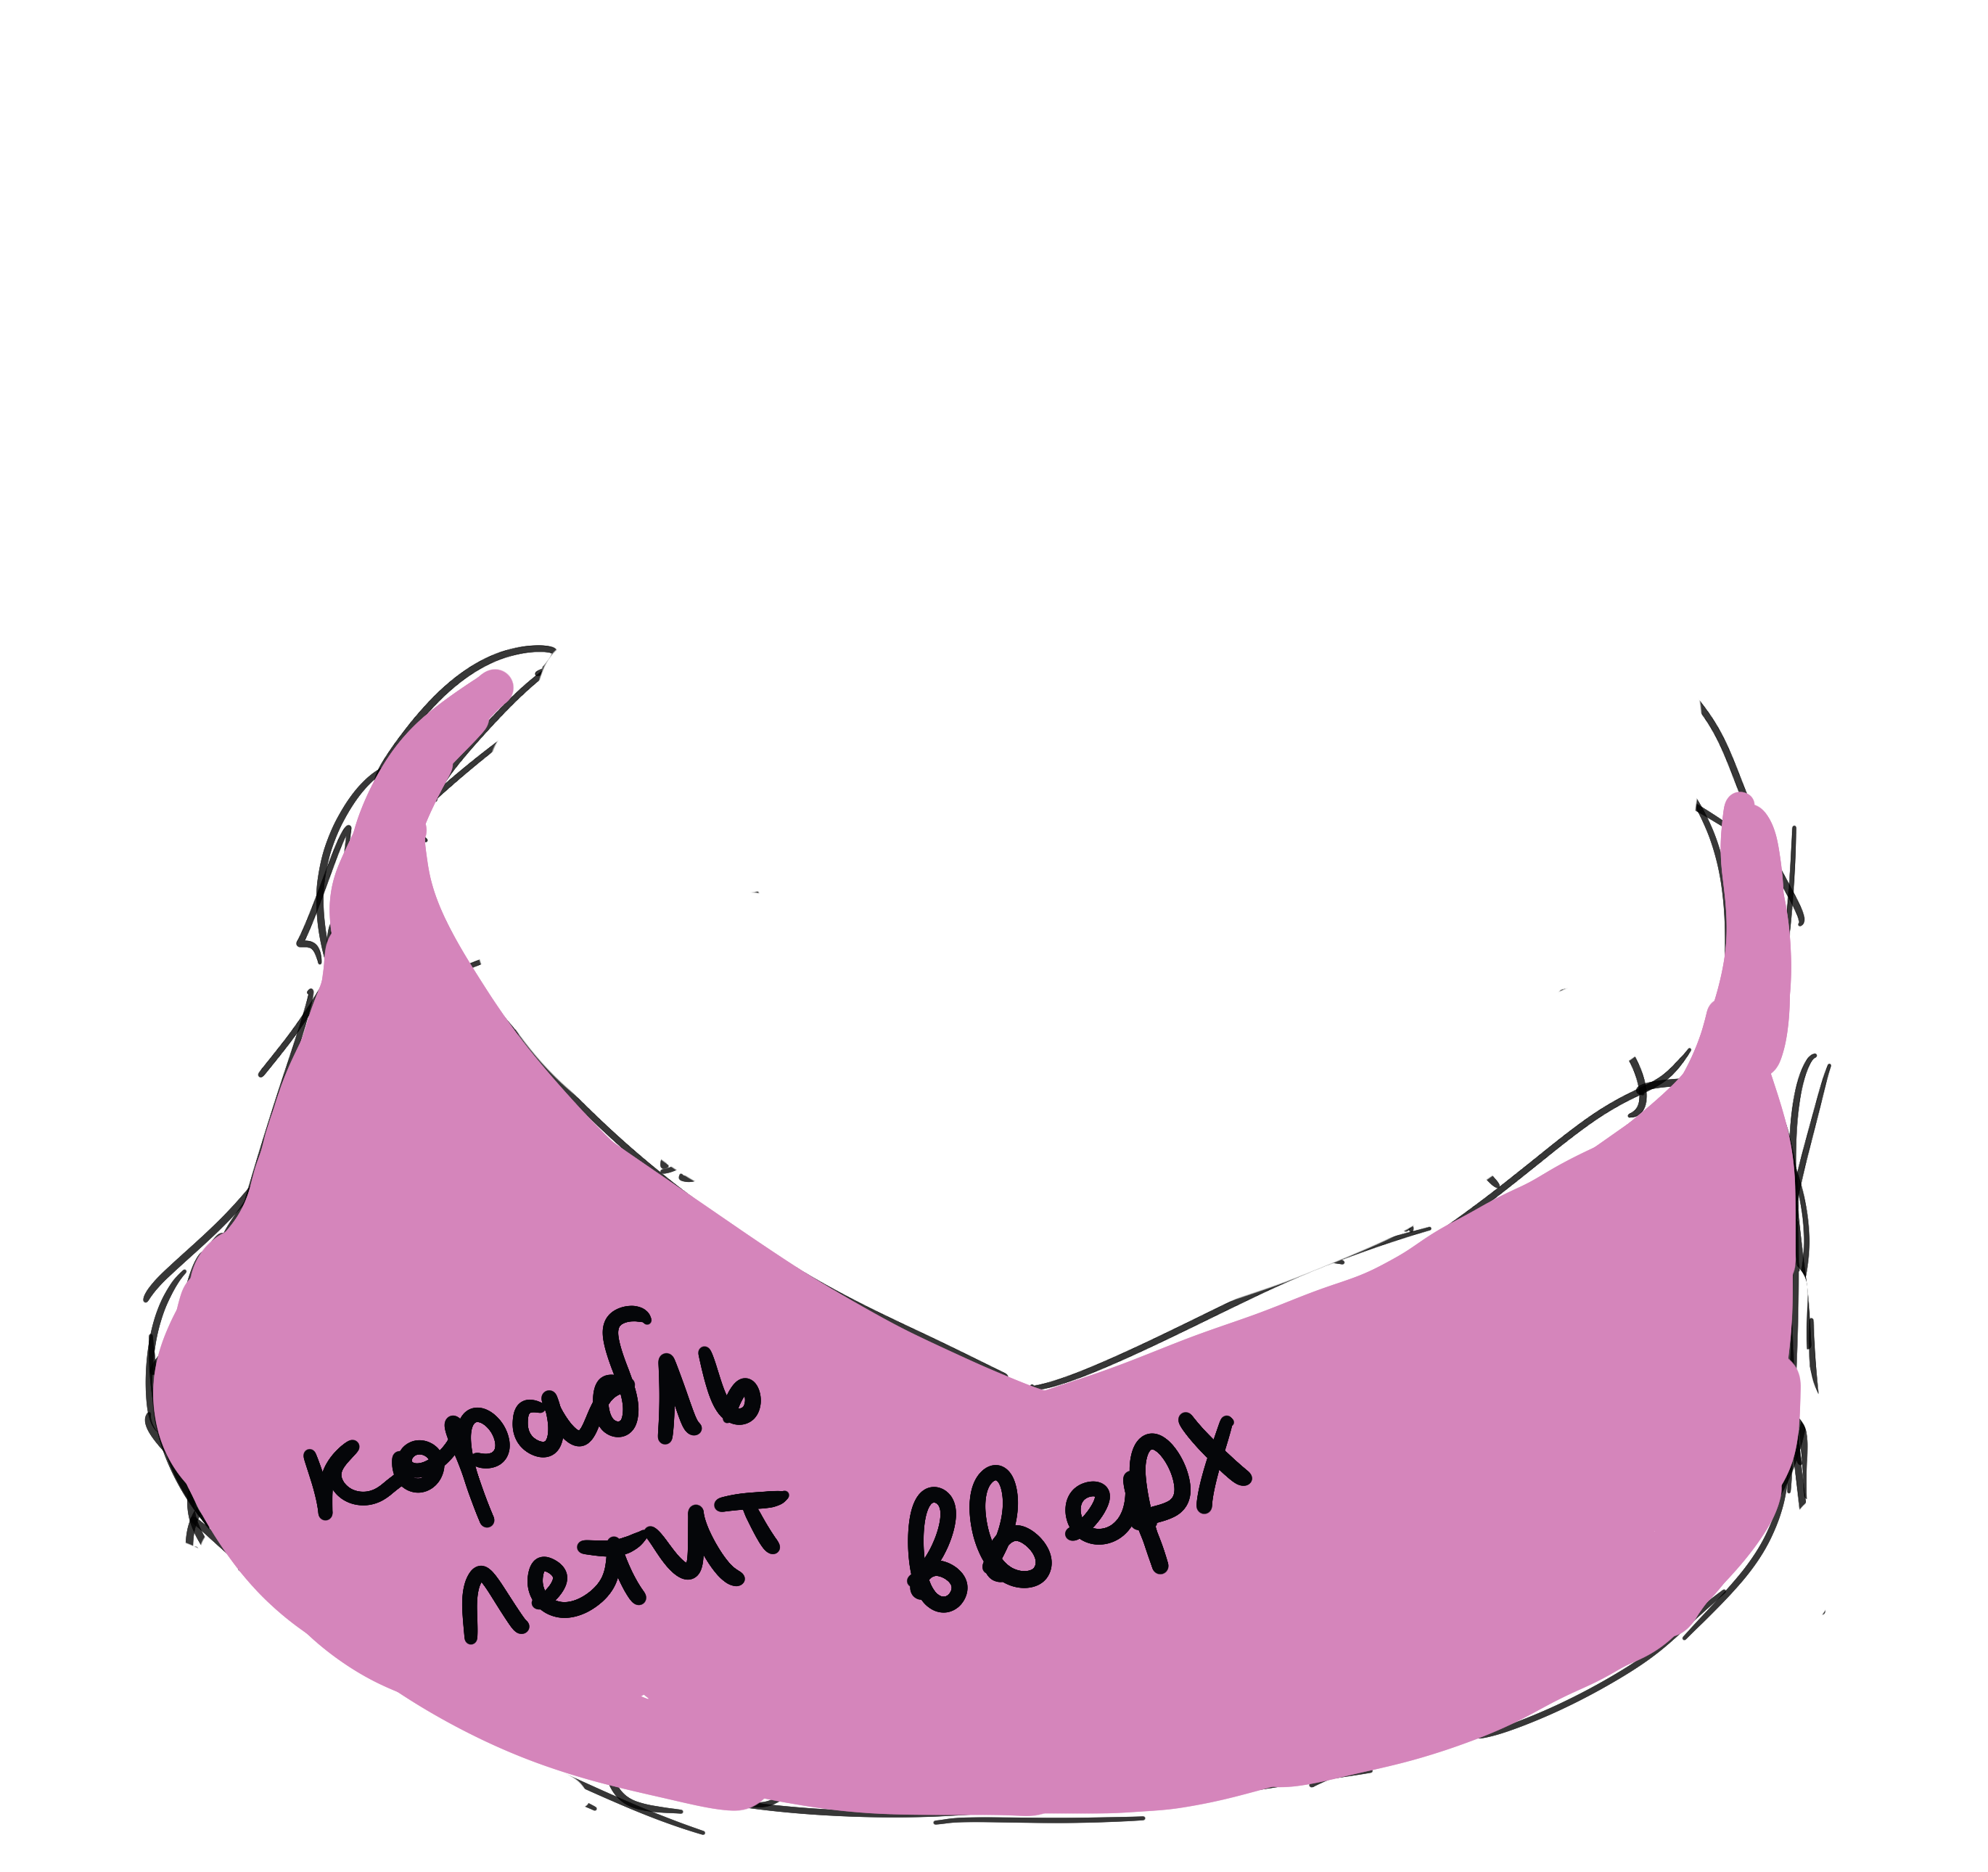 корабль
летит вверх